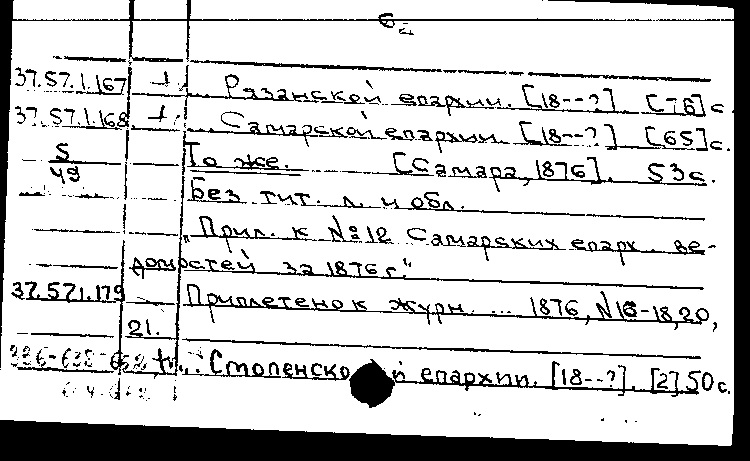 6
37.57.1.167 1 ... Рязанской епархии. [18--?]. [76]с.
37.57.1.168 1 ... Самарской епархии. [18--?] [65]с.
5/49 То же. [Самара, 1876]. 53с.
Без тит. л. и обл.
"Прил. к №12 Самарских епарх. ве-
домостей за 1876 г."
37.57.1.179 Приплетено к журн. ... 1876, №16-18,20,
21.
... Смоленско й епархии. [18--?]. [2],50с.